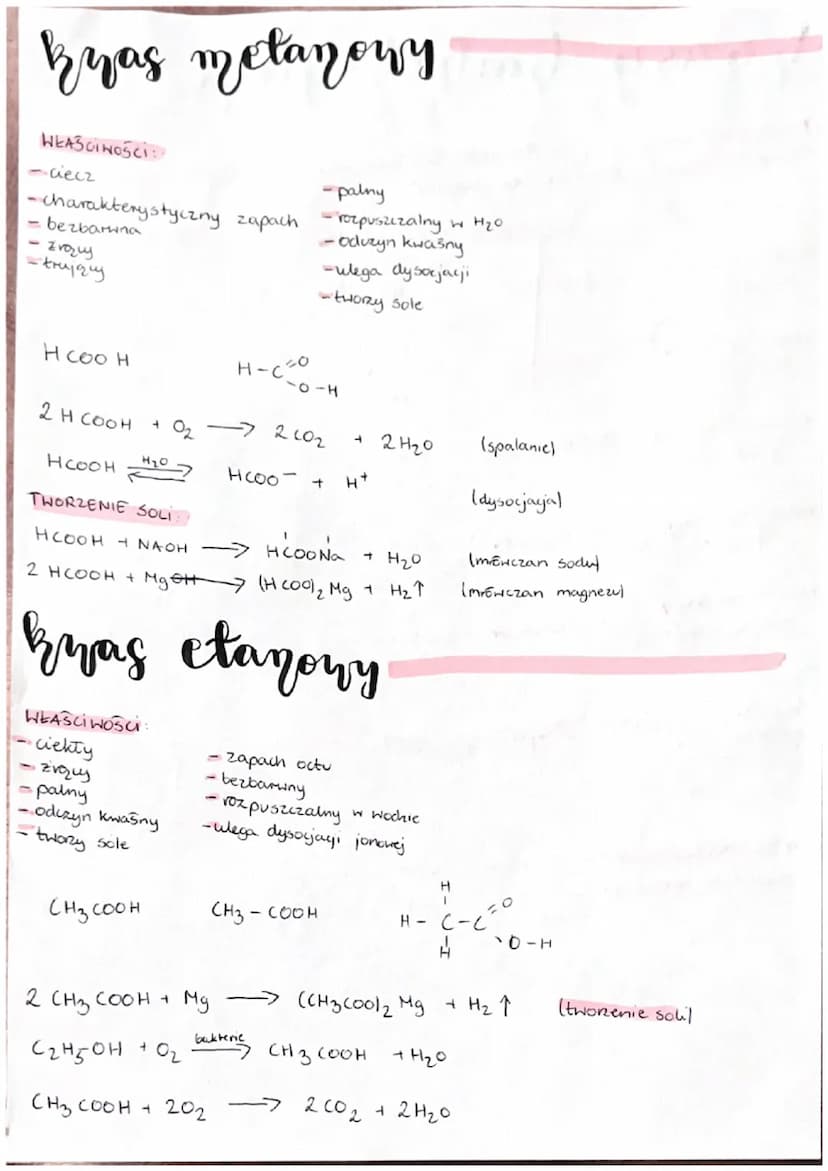 kwas metanowy
WŁAŚCIWOŚCI:
- ciecz
- charakterystyczny zapach
- bezbarwna
- żrący
- trujący
- palny
- rozpuszczalny w H₂O
- odczyn kwaśny
- ulega dysocjacji
- tworzy sole
HCOOH
H-C=O
-O-H
2 HCOOH + O₂ → 2CO₂ + 2H₂O (spalanie)
HCOOH ⇌ H₂O HCOO⁻ + H⁺ (dysocjacja)
TWORZENIE SOLI:
HCOOH + NAOH → HCOONa + H₂O (mrówczan sodu)
2 HCOOH + Mg → (HCOO)₂Mg + H₂↑ (mrówczan magnezu)
kwas etanowy
WŁAŚCIWOŚCI:
- ciekły
- żrący
- palny
- odczyn kwaśny
- tworzy sole
- zapach octu
- bezbarwny
- rozpuszczalny w wodzie
- ulega dysocjacji jonowej
CH₃COOH CH₃-COOH
H
H-C-C=O
O-H
H
2 CH₃COOH + Mg → (CH₃COO)₂Mg + H₂↑ (tworzenie soli)
C₂H₅OH + O₂ bakterie → CH₃COOH + H₂O
CH₃COOH + 2O₂ → 2CO₂ + 2H₂O